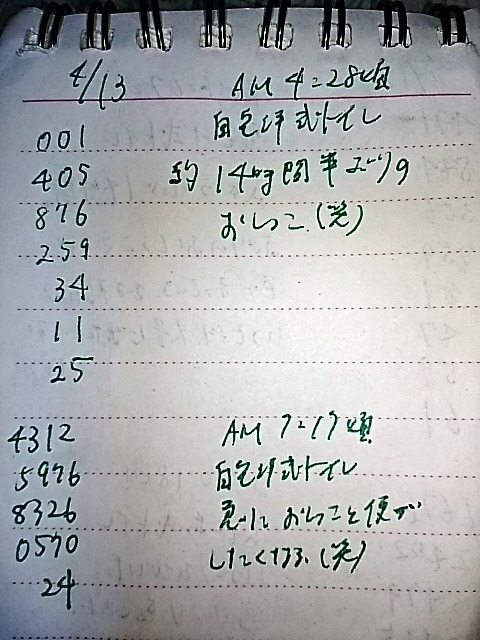 4/13 AM 4:28頃
001 自宅洋式トイレ
405 約14時間半ぶりの
876 おしっこ(笑)
259
34
11
25
4312 AM 7:19頃
5976 自宅洋式トイレ
8326 急に おしっこと便が
0570 したくなる(笑)
24